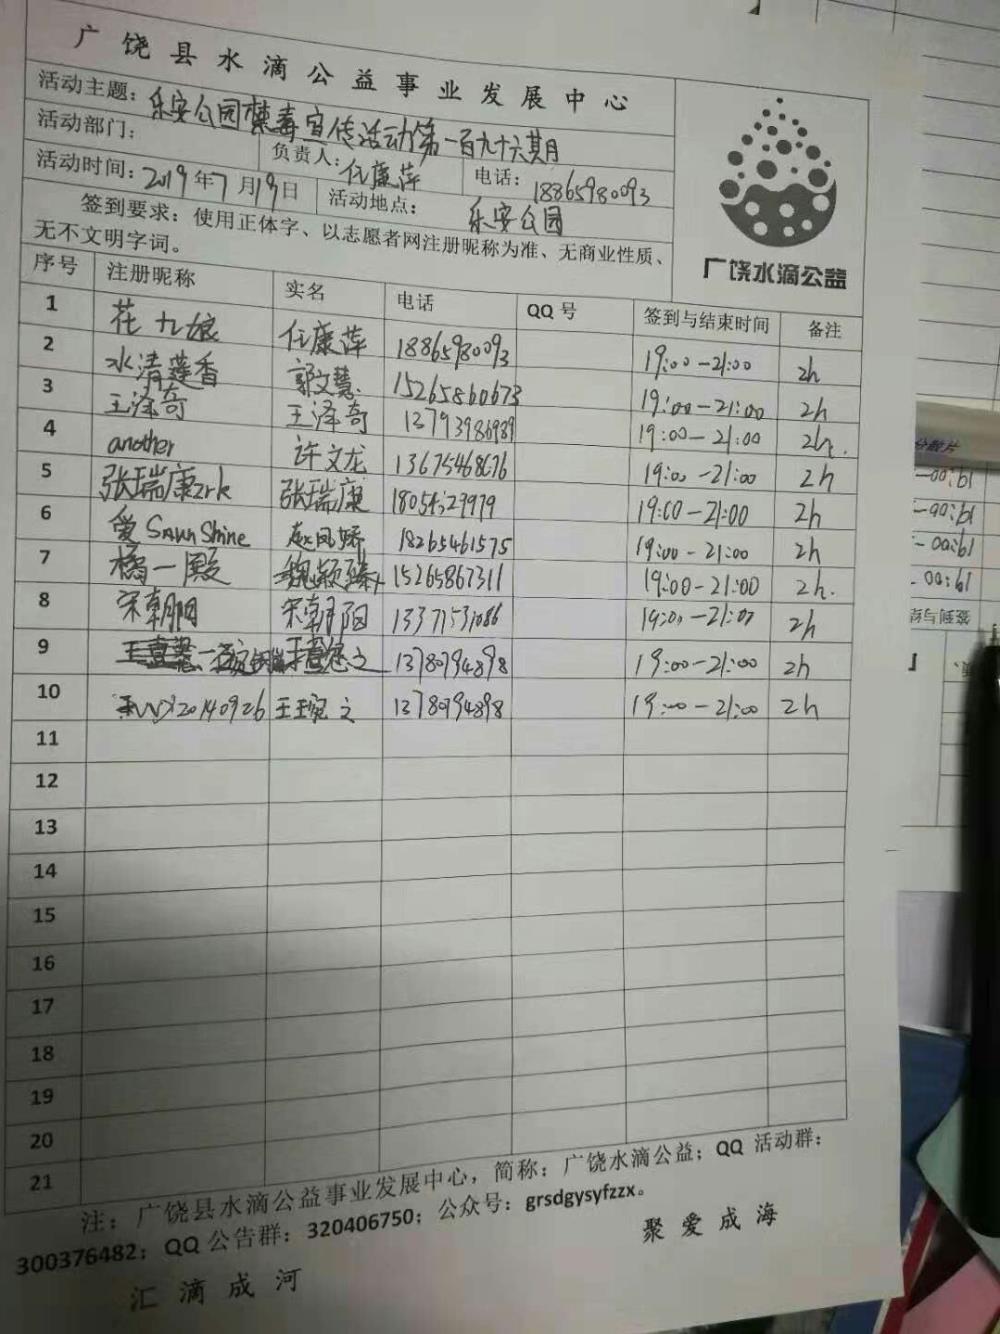 广饶县水滴公益事业发展中心
活动主题：乐安公园禁毒宣传活动第一百九十六期
活动部门： 负责人：任康萍 电话：18865980093
活动时间：2019年7月19日 活动地点：乐安公园
签到要求：使用正体字、以志愿者网注册昵称为准、无商业性质、
无不文明字词。
广饶水滴公益
序号 注册昵称 实名 电话 QQ号 签到与结束时间 备注
1 花九娘 任康萍 18865980093 19:00-21:00 2h
2 水清莲香 郭文慧 15265860673 19:00-21:00 2h
3 王泽奇 王泽奇 13793986989 19:00-21:00 2h.
4 another 许文龙 13675468676 19:00-21:00 2h
5 张瑞康zrk 张瑞康 19:00-21:00 2h
6 爱Sunshine 赵凤娇 18265461575 19:00-21:00 2h
7 橘一殿 魏颖臻 15265867311 19:00-21:00 2h.
8 宋朝阳 宋朝阳 13371531086 19:00-21:00 2h
9 13780794898 19:00-21:00 2h
10 20140926 王琬之 13780794898 19:00-21:00 2h
11
12
13
14
15
16
17
18
19
20
21
注：广饶县水滴公益事业发展中心，简称：广饶水滴公益；QQ活动群：
300376482；QQ公告群：320406750；公众号：grsdgysyfzzx。
汇滴成河 聚爱成海
分散片